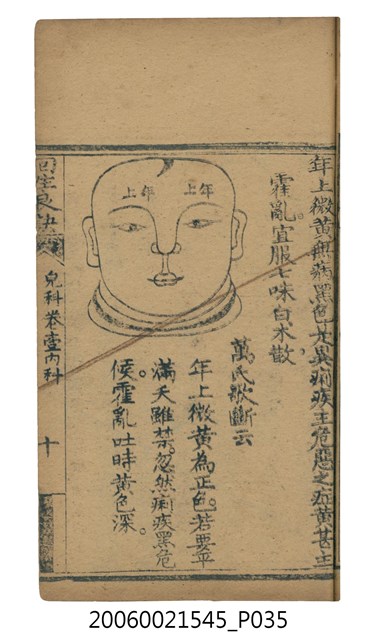 年上微黄無病黑色尤異痢疾主危惡之症黄甚主
霍亂。宜服七味白朮散。
萬氏歌斷云
年上微黄為正色。若要平
滿天雖禁。忽然痢疾黑危
候霍亂吐時黄色深。
年上
年上
回生良訣
兒科卷壹內科
十
20060021545_P035